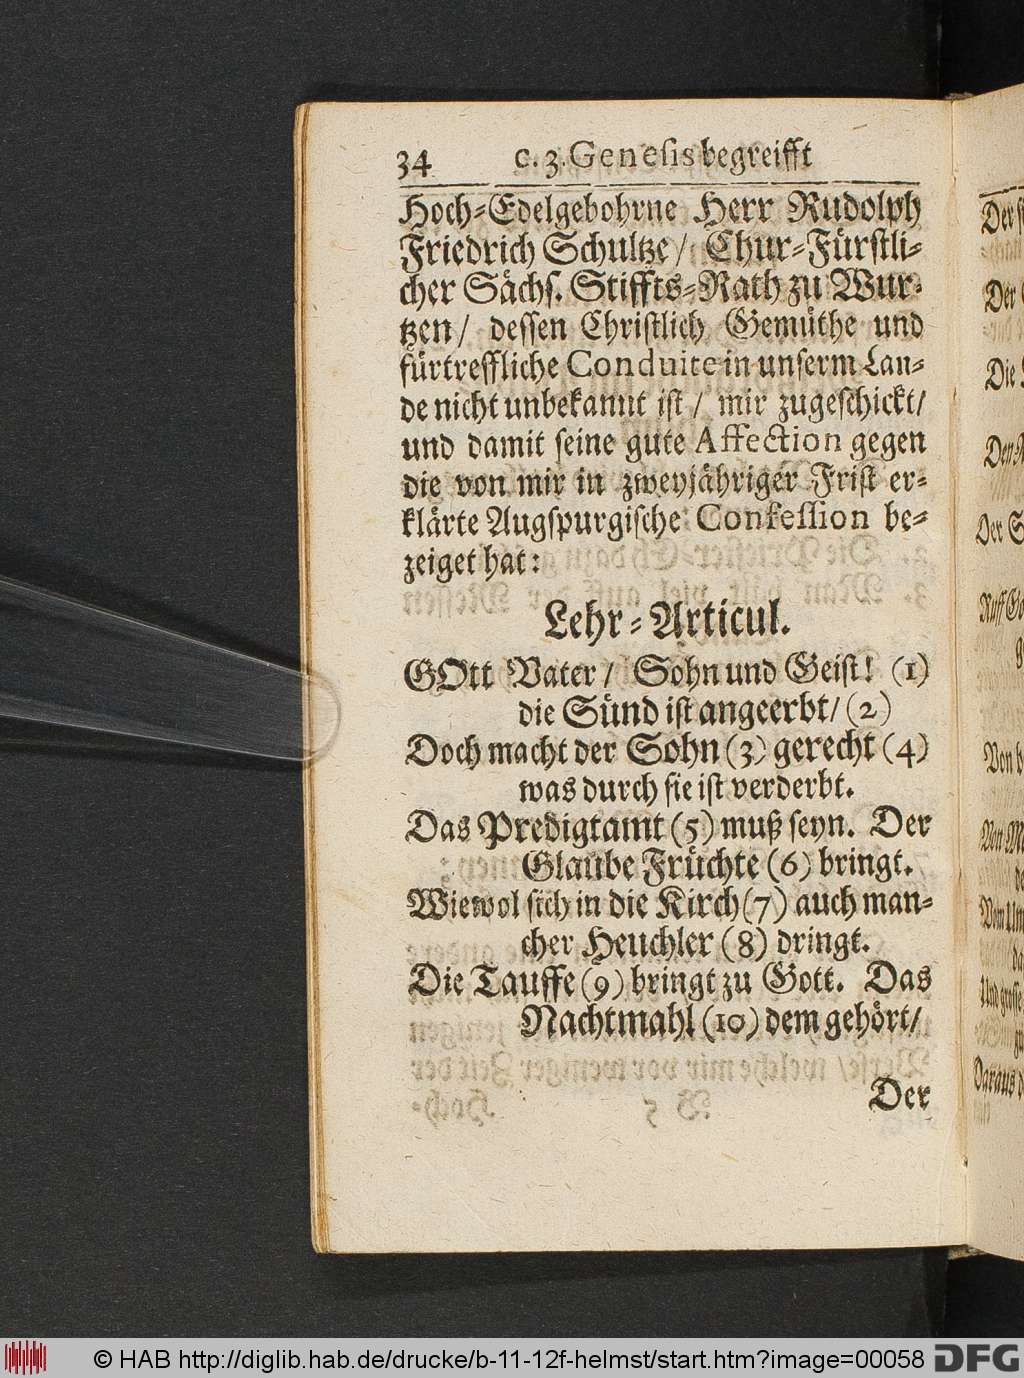 34 c. 3. Genesis begreifft
Hoch-Edelgebohrne Herr Rudolph
Friedrich Schultze / Chur-Fürstli-
cher Sächs. Stiffts-Rath zu Wur-
tzen / dessen Christlich Gemüthe und
fürtreffliche Conduite in unserm Lan-
de nicht unbekannt ist / mir zugeschickt /
und damit seine gute Affection gegen
die von mir in zweyjähriger Frist er-
klärte Augspurgische Confession be-
zeiget hat:
Lehr-Articul.
GOtt Vater / Sohn und Geist! (1)
die Sünd ist angeerbt / (2)
Doch macht der Sohn (3) gerecht (4)
was durch sie ist verderbt.
Das Predigtamt (5) muß seyn. Der
Glaube Früchte (6) bringt.
Wiewol sich in die Kirch (7) auch man-
cher Heuchler (8) dringt.
Die Tauffe (9) bringt zu Gott. Das
Nachtmahl (10) dem gehört /
Der
© HAB http://diglib.hab.de/drucke/b-11-12f-helmst/start.htm?image=00058
DFG